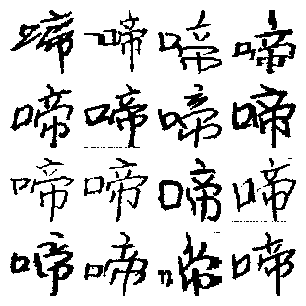 啼啼啼啼
啼啼啼啼
啼啼啼啼
啼啼啼啼